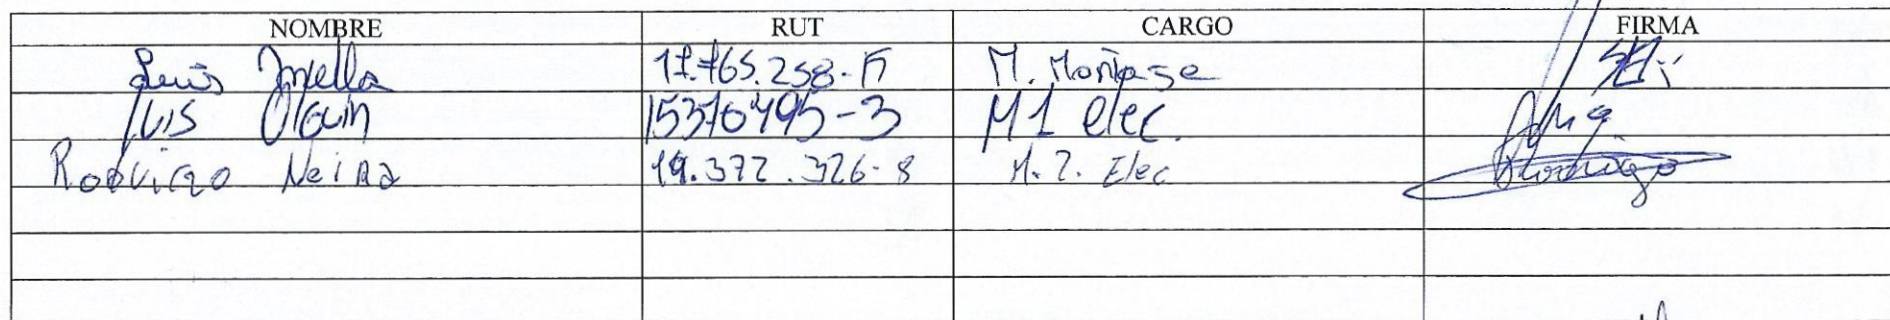 NOMBRE RUT CARGO FIRMA
Luis M. Montaje
Luis Olguin 15376495-3 M1 elec.
Rodrigo Neira 19.372.326-8 M.2. Elec Rodrigo